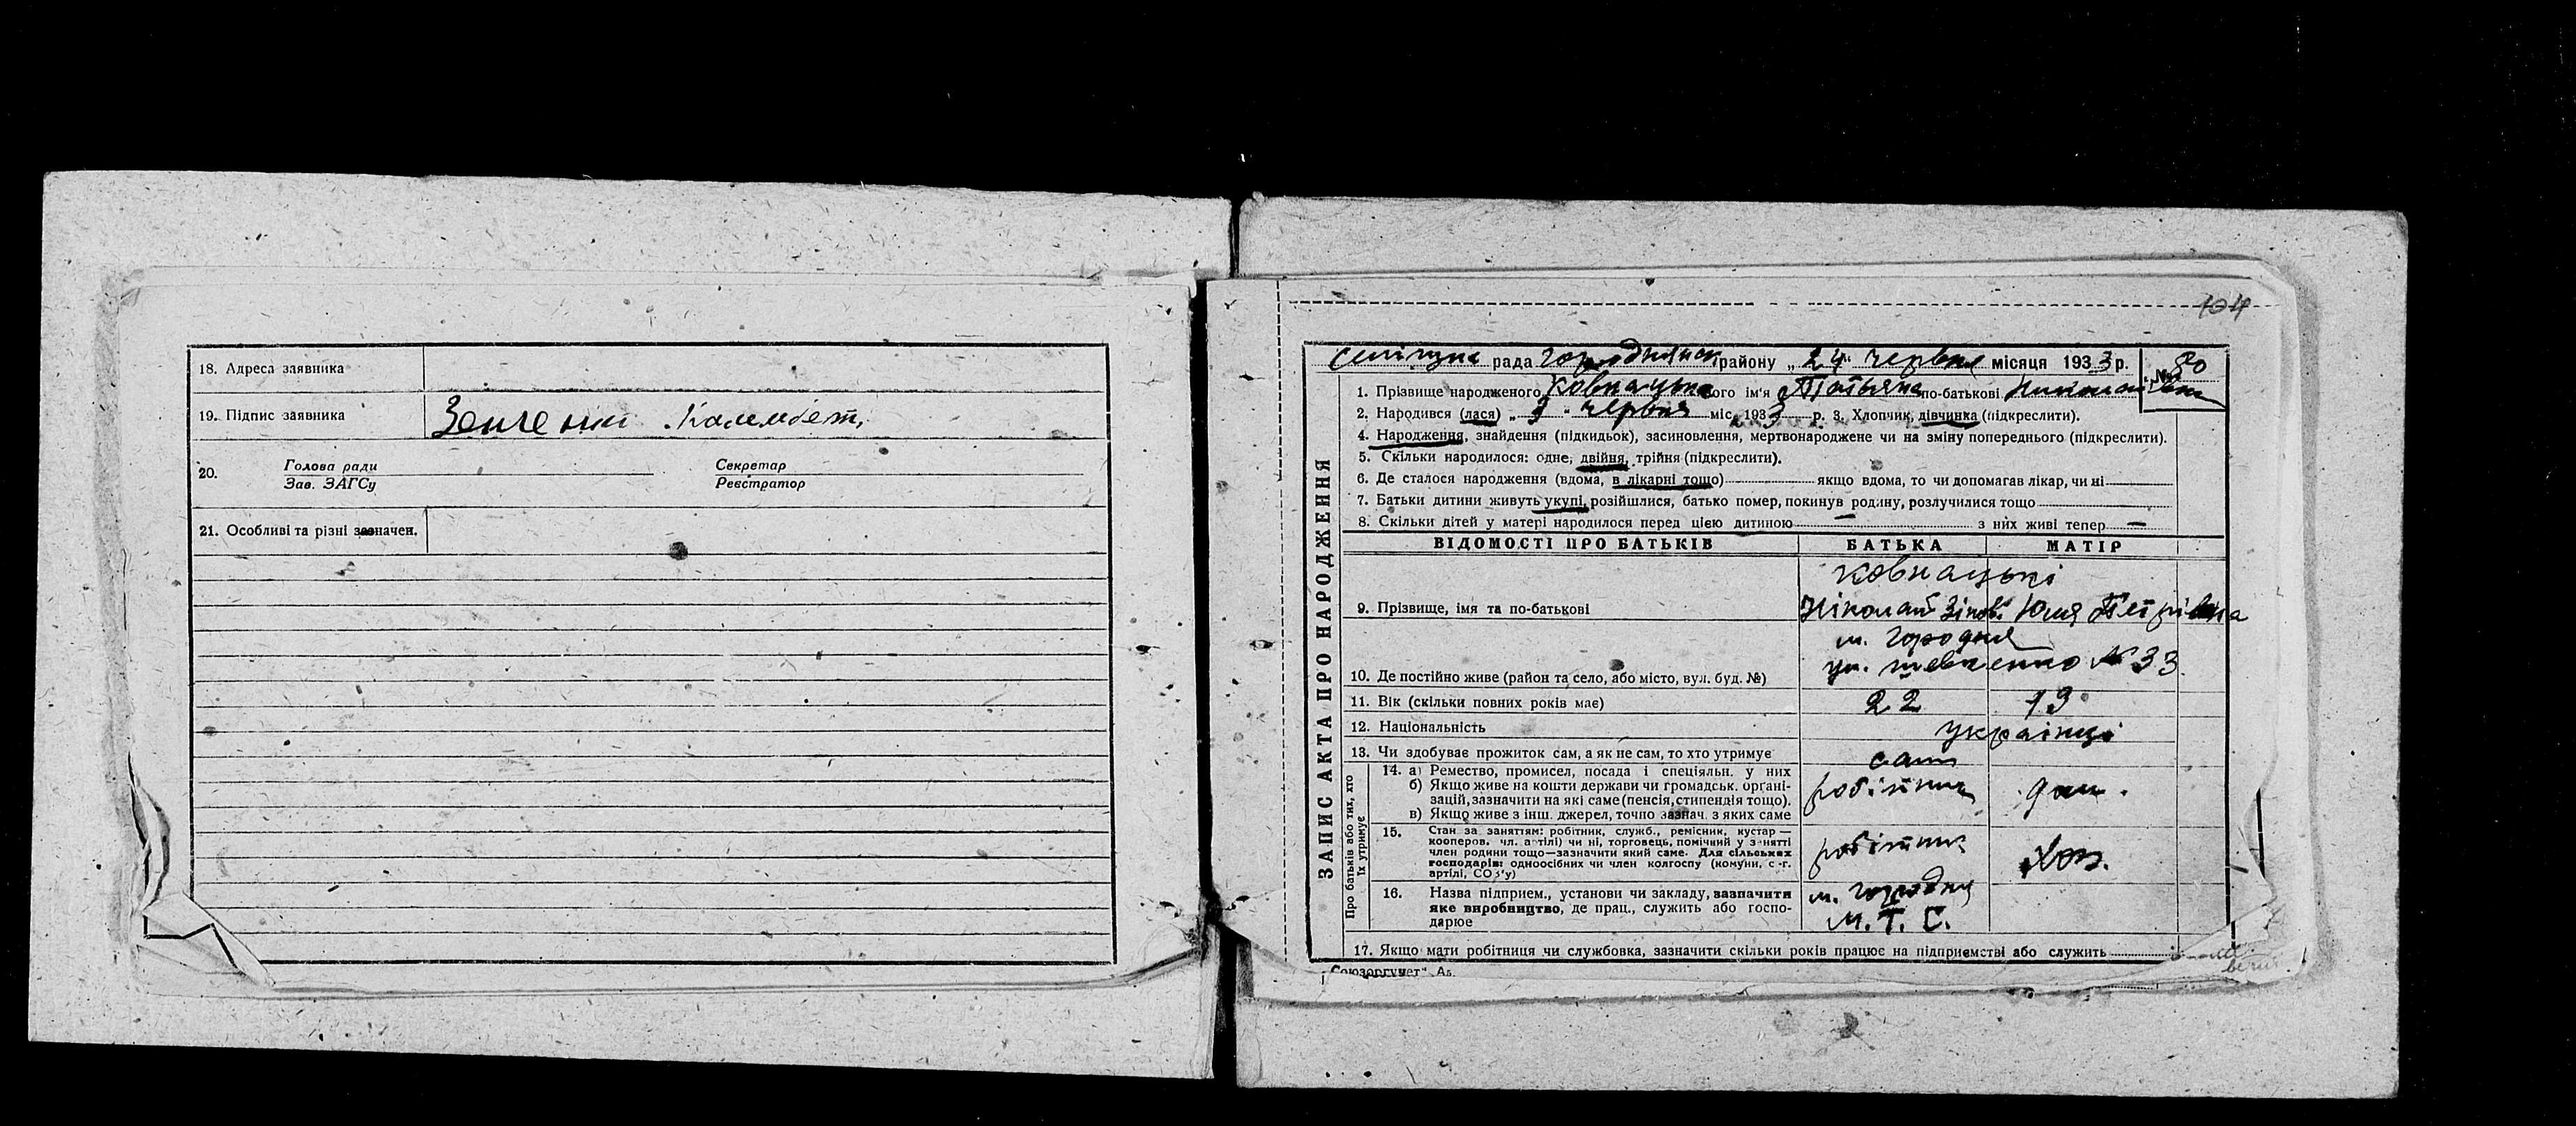 18. Адреса заявника
19. Підпис заявника
20. Голова ради Секретар
Зав. ЗАГСу Реєстратор
21. Особливі та різні зазначен.
104
рада району „24" червня місяця 1933 р. № 80
1. Прізвище народженого Ковнацька ого ім'я Татьяна по-батькові
2. Народився (лася) „9" червня міс. 1933 р. 3. Хлопчик, дівчинка (підкреслити).
4. Народження, знайдення (підкидьок), засиновлення, мертвонароджене чи на зміну попереднього (підкреслити).
5. Скільки народилося: одне, двійня, трійня (підкреслити).
6. Де сталося народження (вдома, в лікарні тощо) якщо вдома, то чи допомагав лікар, чи ні
7. Батьки дитини живуть укупі, розійшлися, батько помер, покинув родину, розлучилися тощо
8. Скільки дітей у матері народилося перед цією дитиною — з них живі тепер —
ЗАПИС АКТА ПРО НАРОДЖЕННЯ
ВІДОМОСТІ ПРО БАТЬКІВ БАТЬКА МАТІР
Ковнацькі
9. Прізвище, імя та по-батькові Ніколай Зінов. Юлія Петрівна
м. Городня
ул. Шевченко № 33
10. Де постійно живе (район та село, або місто, вул. буд. №)
11. Вік (скільки повних років має) 22 19
12. Національність українці
13. Чи здобуває прожиток сам, а як не сам, то хто утримує сам
Про батьків або тих, хто їх утримує
14. а) Ремество, промисел, посада і спеціяльн. у них робітник дом.
б) Якщо живе на кошти держави чи громадськ. органі-
зацій, зазначити на які саме (пенсія, стипендія тощо).
в) Якщо живе з інш. джерел, точно зазнач. з яких саме
15. Стан за заняттям: робітник, служб., ремісник, кустар — робітник хоз.
кооперов. чл. артілі) чи ні, торговець, помічний у занятті
член родини тощо—зазначити який саме. Для сільських
господарів: одноосібних чи член колгоспу (комуни, с.-г.
артілі, СОЗ'у)
16. Назва підприєм., установи чи закладу, зазначити м. Городня
яке виробництво, де прац., служить або госпо- М.Т.С.
дарює
17. Якщо мати робітниця чи службовка, зазначити скільки років працює на підприємстві або служить
„Союзоргучет"